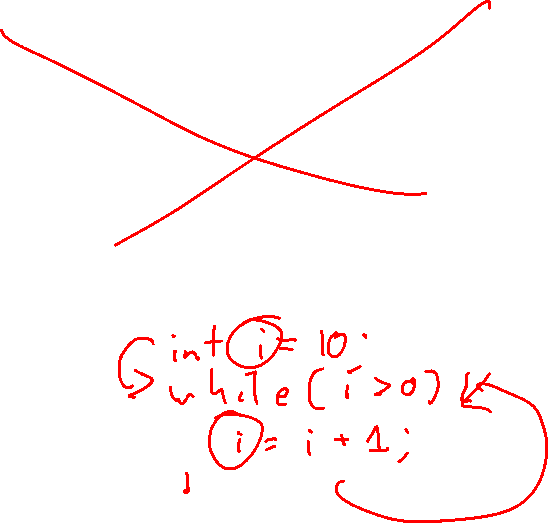 int i = 10
while(i>0)
i = i + 1;